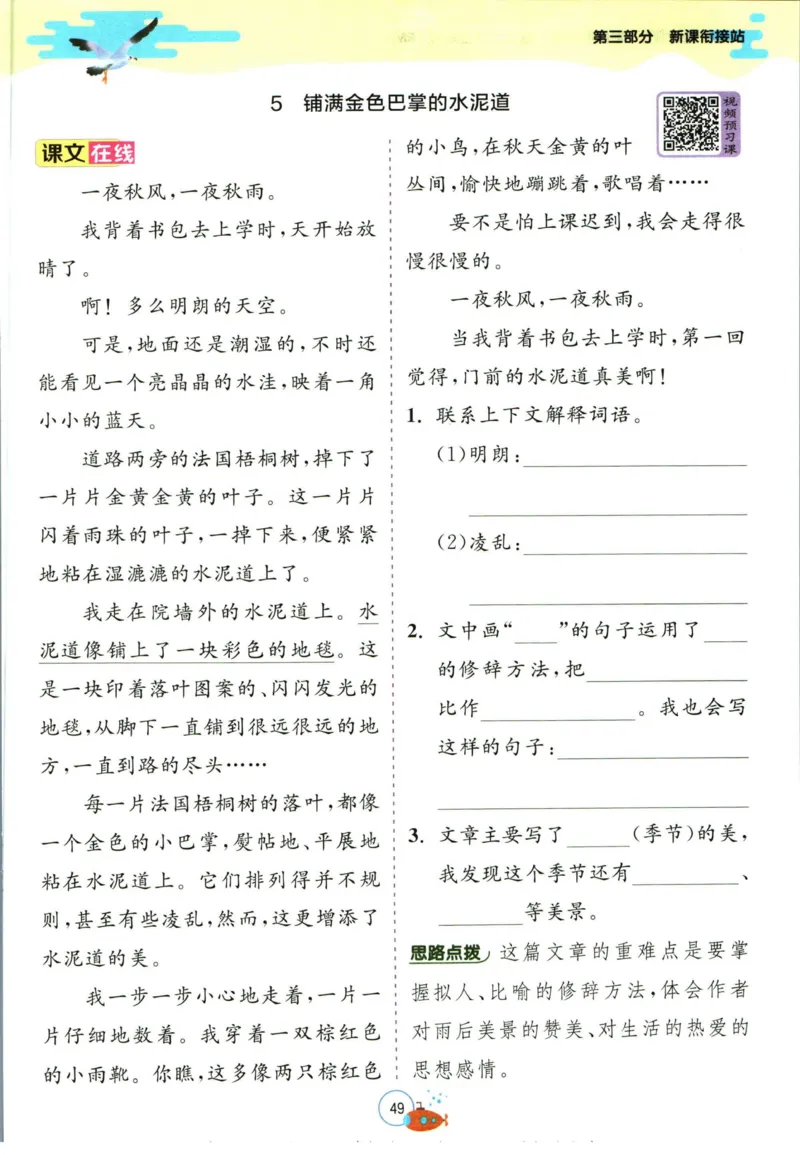 第三部分 新课衔接站
5 铺满金色巴掌的水泥道
视频预习课
课文在线
一夜秋风,一夜秋雨。
我背着书包去上学时,天开始放
晴了。
啊！多么明朗的天空。
可是,地面还是潮湿的,不时还
能看见一个亮晶晶的水洼,映着一角
小小的蓝天。
道路两旁的法国梧桐树,掉下了
一片片金黄金黄的叶子。这一片片
闪着雨珠的叶子,一掉下来,便紧紧
地粘在湿漉漉的水泥道上了。
我走在院墙外的水泥道上。水
泥道像铺上了一块彩色的地毯。这
是一块印着落叶图案的、闪闪发光的
地毯,从脚下一直铺到很远很远的地
方,一直到路的尽头……
每一片法国梧桐树的落叶,都像
一个金色的小巴掌,熨帖地、平展地
粘在水泥道上。它们排列得并不规
则,甚至有些凌乱,然而,这更增添了
水泥道的美。
我一步一步小心地走着,一片一
片仔细地数着。我穿着一双棕红色
的小雨靴。你瞧,这多像两只棕红色
的小鸟,在秋天金黄的叶
丛间,愉快地蹦跳着,歌唱着……
要不是怕上课迟到,我会走得很
慢很慢的。
一夜秋风,一夜秋雨。
当我背着书包去上学时,第一回
觉得,门前的水泥道真美啊！
1. 联系上下文解释词语。
(1)明朗:
(2)凌乱:
2. 文中画“____”的句子运用了____
的修辞方法,把____
比作____。我也会写
这样的句子:____
3. 文章主要写了____(季节)的美,
我发现这个季节还有____、
____等美景。
思路点拨 这篇文章的重难点是要掌
握拟人、比喻的修辞方法,体会作者
对雨后美景的赞美、对生活的热爱的
思想感情。
49